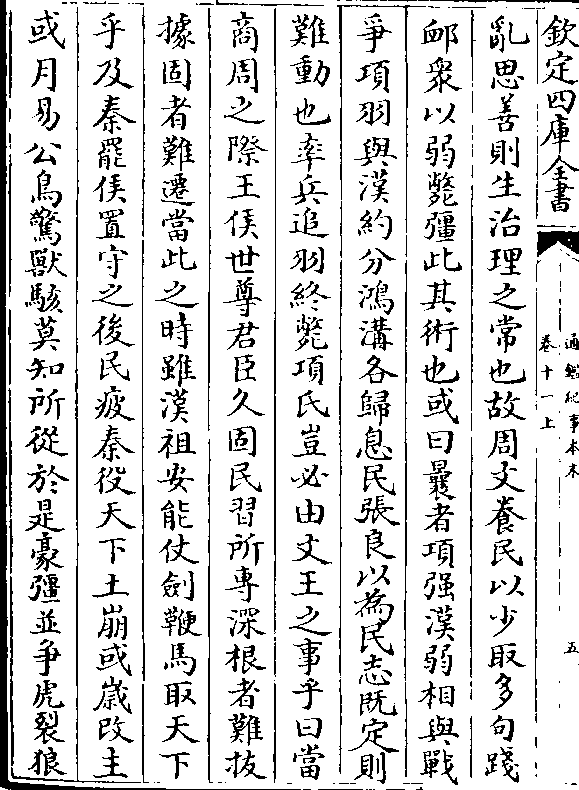 欽定四庫全書
通鑑紀事本末
卷十一上
五
亂思善則生治理之常也故周文養民以少取多句踐
卹衆以弱斃彊此其術也或曰曩者項强漢弱相與戰
爭項羽與漢約分鴻溝各歸息民張良以為民志既定則
難動也率兵追羽終斃項氏豈必由文王之事乎曰當
商周之際王侯世尊君臣久固民習所專深根者難拔
據固者難遷當此之時雖漢祖安能仗劍鞭馬取天下
乎及秦罷侯置守之後民疲秦役天下土崩或歲改主
或月易公鳥驚獸駭莫知所從於是豪彊並爭虎裂狼